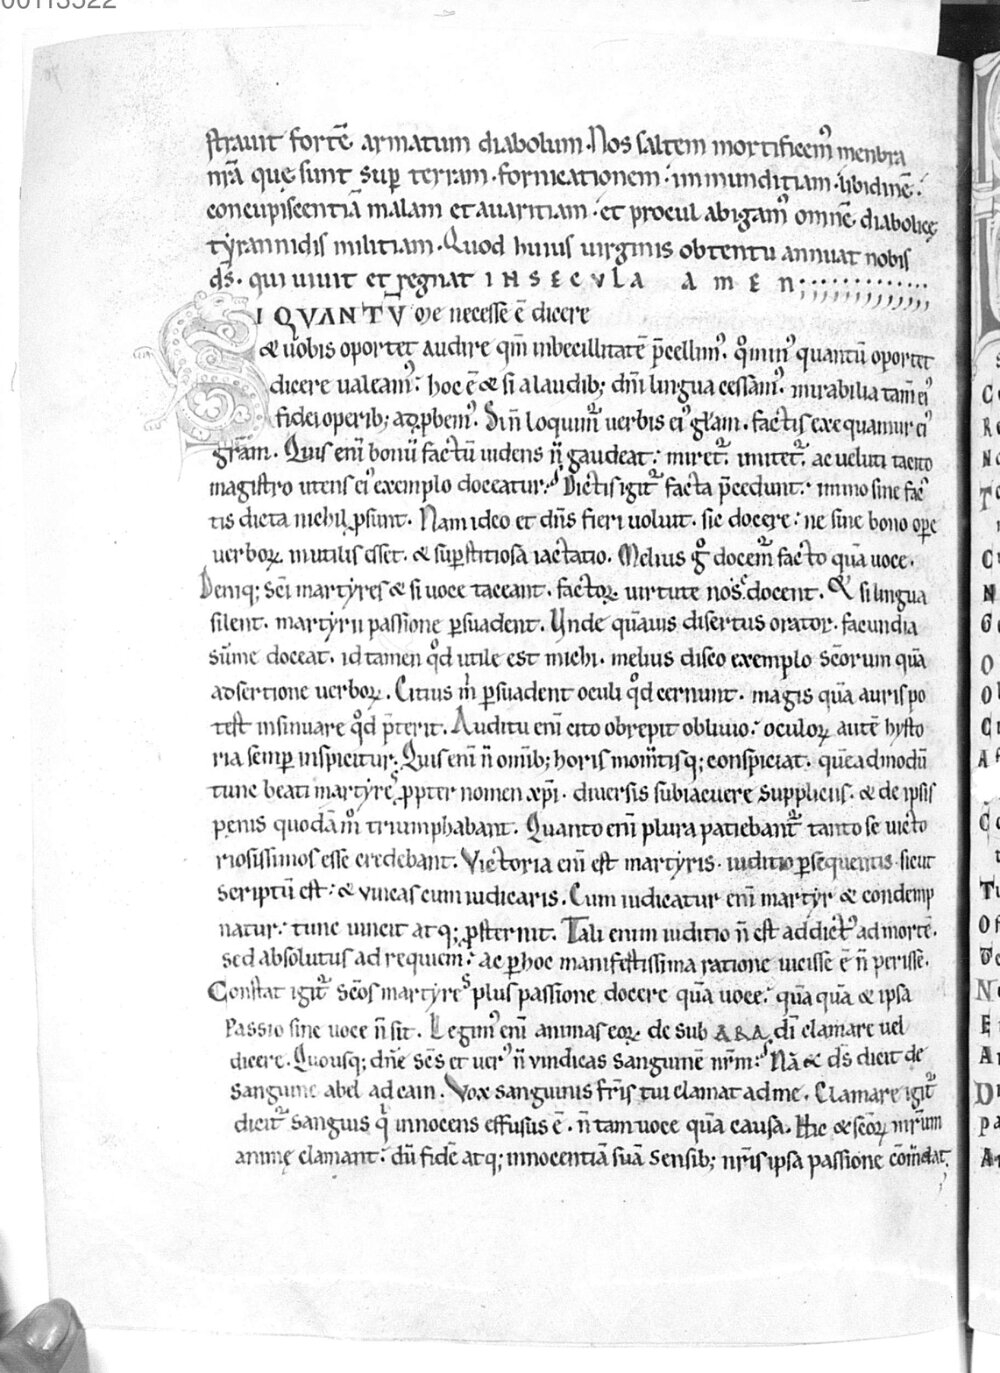 00113522
strauit fortē armatum diabolum. Nos saltem mortificemꝰ menbra
nr̄a quę sunt suꝑ terram. fornicationem. inmunditiam. libidinē.
concupiscentiā malam et auaritiam. et procul abigamꝰ omnē diabolicę
tyrannidis militiam. Quod huius uirginis obtentu annuat nobis
ds̄. qui uiuit et regnat IN SECVLA AMEN
SI QVANTV me necesse ē dicere
& uobis oportet audire qm̄ inbecillitatē p̄cellimꝰ. qͦminꝰ quantū oportet
dicere ualeamꝰ. hoc ē & si a laudib; dn̄i lingua cessamꝰ. mirabilia tam̄ eiꝰ
fidei operib; adꝓbemꝰ. Si n̄ loquimur uerbis eiꝰ gl̄am. factis exequamur eiꝰ
gr̄am. Quis eni bonū factū uidens n̄ gaudeat. miretur. imitetur. ac ueluti tacito
magistro utens eiꝰ exemplo doceatur. Dictis igitur facta p̄cedunt. immo sine fac
tis dicta nichil ꝓsunt. Nam ideo et dn̄s fieri uoluit. sic docere. ne sine bono oꝑe
uerboꝝ inutilis esset. & suꝑstitiosa iactatio. Melius gͦ docemur facto quā uoce.
Deniq; sc̄i martyres & si uoce taceant. factoꝝ uirtute nos docent. Et si lingua
silent. martyrii passione ꝑsuadent. Unde quāuis disertus orator. facundia
sūme doceat. id tamen qͦd utile est michi. melius disco exemplo sc̄orum quā
adsertione uerboꝝ. Citius n̄ ꝑsuadent oculi qͦd cernunt. magis quā auris po
test insinuare qͦd p̄terit. Auditu eni cito obrepit obliuio. oculoꝝ autē hysto
ria semꝑ inspicitur. Quis eni n̄ omib; horis momtisq; conspiciat. quēadmodū
tunc beati martyres ꝓpter nomen xp̄i. diuersis subiacuere suppliciis. & de ipsis
penis quodāmͦ triumphabant. Quanto eni plura patiebantur tanto se uicto
riosissimos esse credebant. Victoria eni est martyris. iuditio ꝑsequentis sicut
scriptū est. & vincas cum iudicaris. Cum iudicatur eni martyr & condemp
natur. tunc uincit atq; ꝓsternit. Tali enim iuditio n̄ est addictꝰ ad mortē.
sed absolutus ad requiem. ac ꝑ hoc manifestissima ratione uicisse ē n̄ perisse.
Constat igitur sc̄os martyres plus passione docere quā uoce. quā quā & ipsa
passio sine uoce n̄ sit. Legimꝰ eni animas eoꝝ de sub ARA di clamare uel
dicere. Quousq; dn̄e sc̄s et uerꝰ n̄ vindicas sanguinē nrm. Nā & ds̄ dicit de
sanguine abel ad cain. Vox sanguinis fr̄is tui clamat ad me. Clamare igitur
dicitur sanguis qͥ innocens effusus ē. n̄ tam uoce quā causa. Hic & sc̄oꝝ nr̄rum
animę clamant. dū fidē atq; innocentiā suā sensib; nr̄is ipsa passione cōmdat.